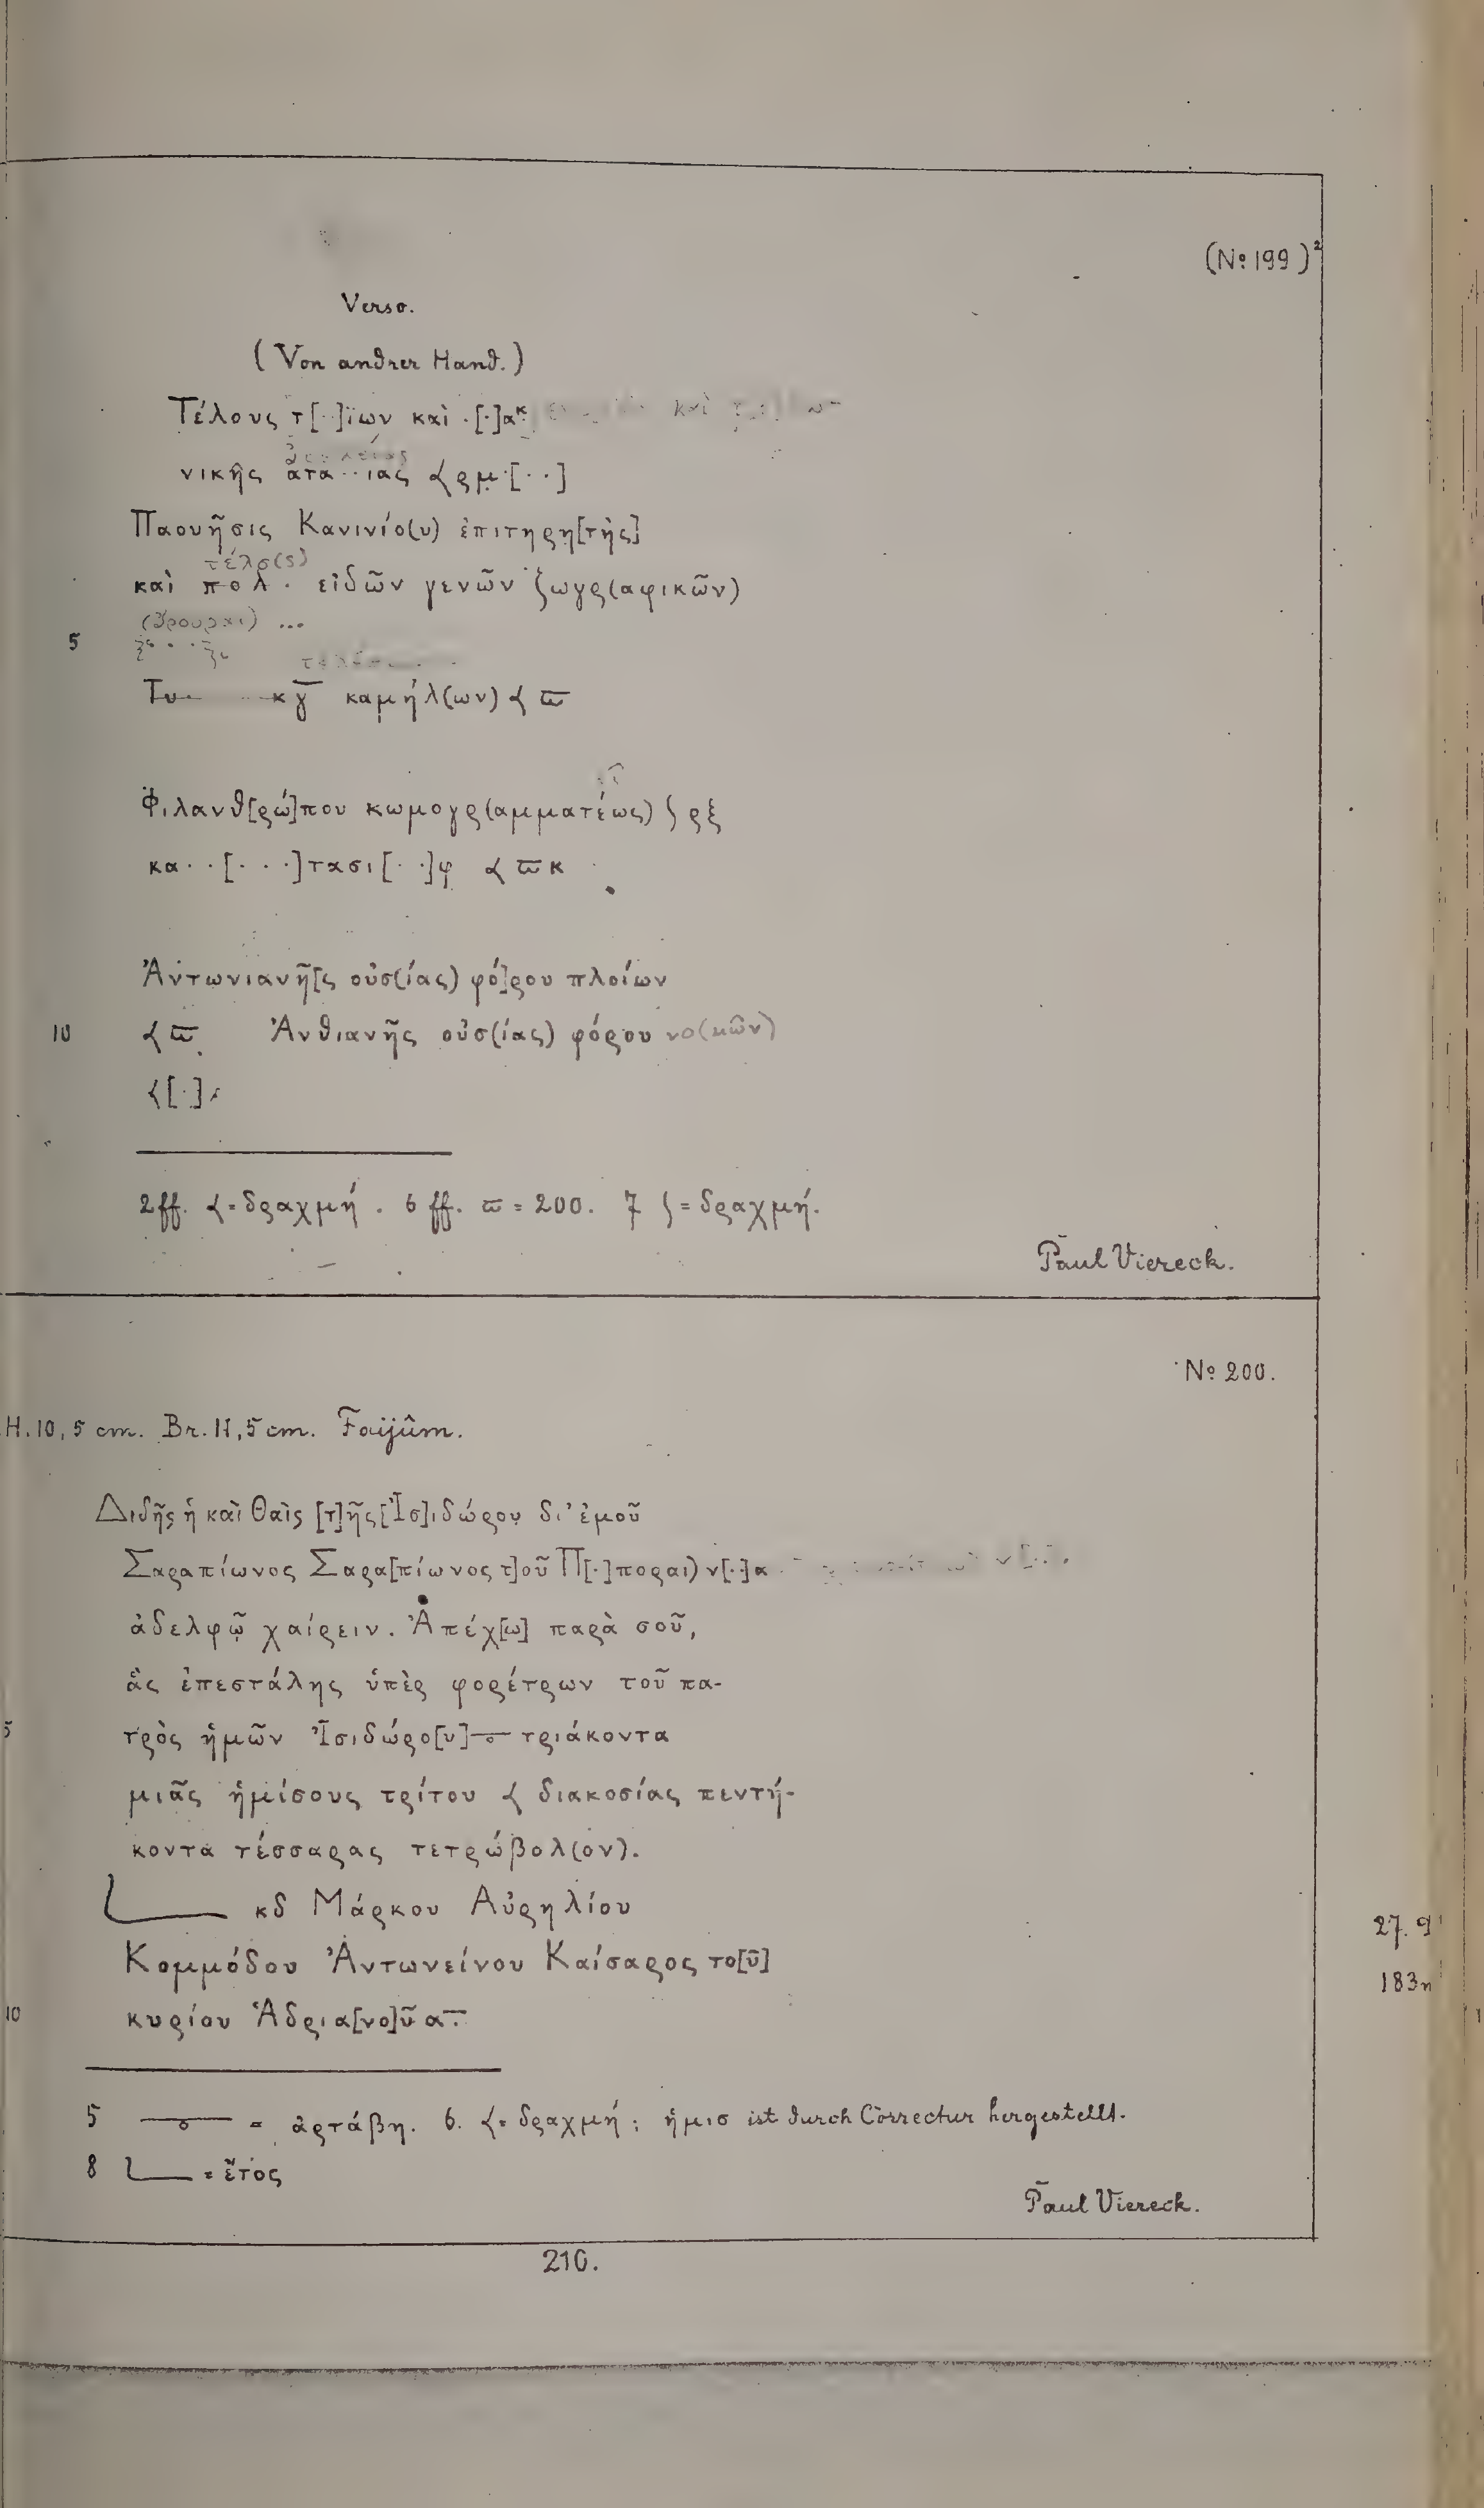 (No 199)²
Verso.
(Von andrer Hand.)
Τέλους τ[··]ϊων καὶ ·[·]ακ
νικῆς ατα··ιας 𐅻ρμ·[··]
Παουῆσις Κανινίο(υ) ἐπιτηρη[τὴς]
τέλο(ς)
καὶ πολ· εἰδῶν γενῶν ζωγρ(αφικῶν)
(ἄρουραι) ...
5
κγ̅ καμήλ(ων) 𐅻 ϖ
Φιλανθ[ρώ]που κωμογρ(αμματέως) ʃ ρξ
κα··[···]τασι[··]φ 𐅻 ϖκ
Ἀντωνιανῆ[ς οὐσ(ίας) φό]ρου πλοίων
10 𐅻 ϖ Ἀνθιανῆς οὐσ(ίας) φόρου νο(μῶν)
𐅻[·]
2 ff. 𐅻 = δραχμή. 6 ff. ϖ = 200. 7 ʃ = δραχμή.
Paul Viereck.
No 200.
H. 10,5 cm. Br. 11,5 cm. Faijûm.
Διδῆς ἡ καὶ Θαὶς [τ]ῆς [Ἰσ]ιδώρου δι' ἐμοῦ
Σαραπίωνος Σαρα[πίωνος τ]οῦ Π[·]ποραι) ν[··]α
ἀδελφῷ χαίρειν. Ἀπέχ[ω] παρὰ σοῦ,
ἃς ἐπεστάλης ὑπὲρ φορέτρων τοῦ πα-
5 τρὸς ἡμῶν Ἰσιδώρο[υ] –ο– τριάκοντα
μιᾶς ἡμίσους τρίτου 𐅻 διακοσίας πεντή-
κοντα τέσσαρας τετρώβολ(ον).
L κδ Μάρκου Αὐρηλίου
Κομμόδου Ἀντωνείνου Καίσαρος το[ῦ]
10 κυρίου Ἁδρια[νο]ῦ α̅.
27. 9
183n
5 –ο– = ἀρτάβη. 6. 𐅻 = δραχμή; ἡμισ ist durch Correctur hergestellt.
8 L = ἔτος
Paul Viereck.
210.